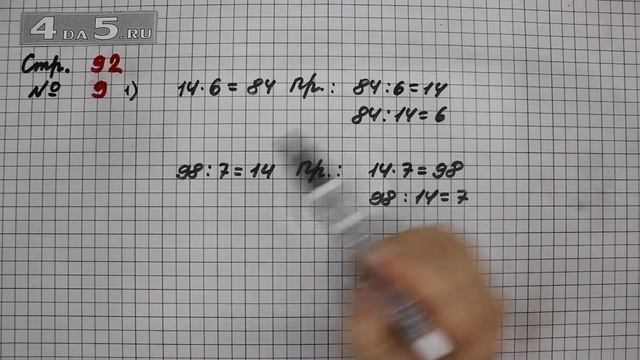 4 DA 5.RU
Стр. 92
№ 9 1) 14·6=84 Пр.: 84:6=14
84:14=6
98:7=14 Пр.: 14·7=98
98:14=7